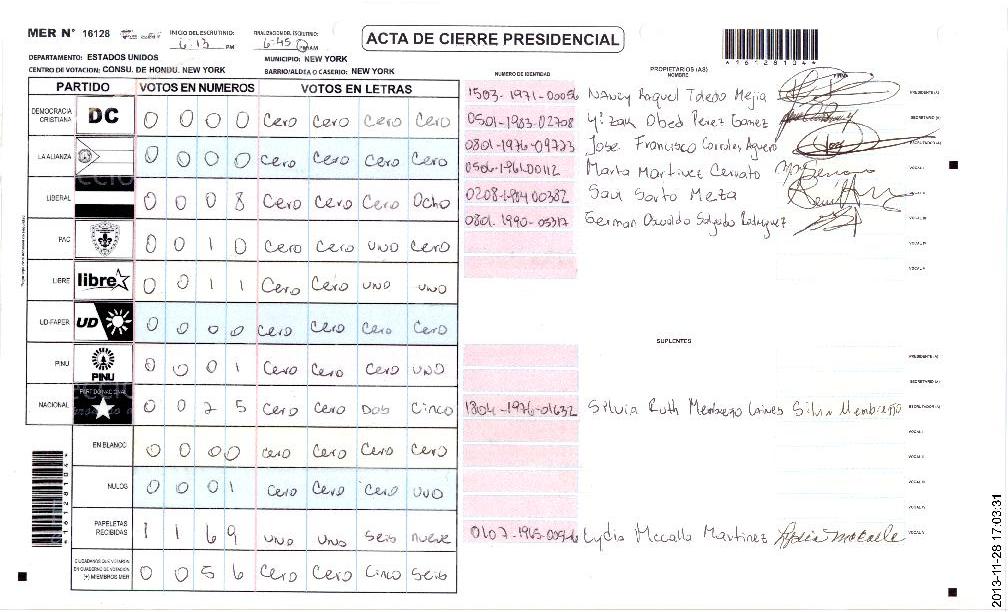 MER N° 16128
INICIO DEL ESCRUTINIO: 6:13 PM
FINALIZACION DEL ESCRUTINIO: 6:45 PM AM
ACTA DE CIERRE PRESIDENCIAL
*16128104*
DEPARTAMENTO: ESTADOS UNIDOS
MUNICIPIO: NEW YORK
CENTRO DE VOTACION: CONSU. DE HONDU. NEW YORK
BARRIO/ALDEA O CASERIO: NEW YORK
PARTIDO VOTOS EN NUMEROS VOTOS EN LETRAS
DEMOCRACIA CRISTIANA DC 0 0 0 0 Cero Cero Cero Cero
LA ALIANZA 0 0 0 0 Cero Cero Cero Cero
LIBERAL 0 0 0 8 Cero Cero Cero Ocho
PAC 0 0 1 0 Cero Cero uno Cero
LIBRE libre 0 0 1 1 Cero Cero uno uno
UD-FAPER UD 0 0 0 0 Cero Cero Cero Cero
PINU PINU 0 0 0 1 Cero Cero Cero uno
NACIONAL PARTIDO NACIONAL 0 0 2 5 Cero Cero Dos Cinco
EN BLANCO 0 0 0 0 Cero Cero Cero Cero
NULOS 0 0 0 1 Cero Cero Cero uno
PAPELETAS RECIBIDAS 1 1 6 9 uno uno seis nueve
CIUDADANOS QUE VOTARON EN CUADERNO DE VOTACION (+) MIEMBROS MER 0 0 5 6 Cero Cero Cinco Seis
*16128104*
NUMERO DE IDENTIDAD
PROPIETARIOS (AS)
NOMBRE
FIRMA
1503-1971-00056 Nancy Raquel Toledo Mejia PRESIDENTE (A)
0501-1983-02708 Yizak Obed Perez Gomez SECRETARIO (A)
0801-1976-09723 Jose Francisco Corrales Aguero ESCRUTADOR (A)
0506-1961-00112 Marta Martinez Cervato VOCAL I
0208-1984-00382 Saul Sorto Meza VOCAL II
0801-1990-05317 German Oswaldo Salgado Rodriguez VOCAL III
VOCAL IV
VOCAL V
SUPLENTES
PRESIDENTE (A)
SECRETARIO (A)
1804-1976-01632 Silvia Ruth Membreño Laines Silvia Membreño ESCRUTADOR (A)
VOCAL I
VOCAL II
VOCAL III
VOCAL IV
Lydia Mccalla Martinez Lydia McCalla VOCAL V
2013-11-28 17:03:31